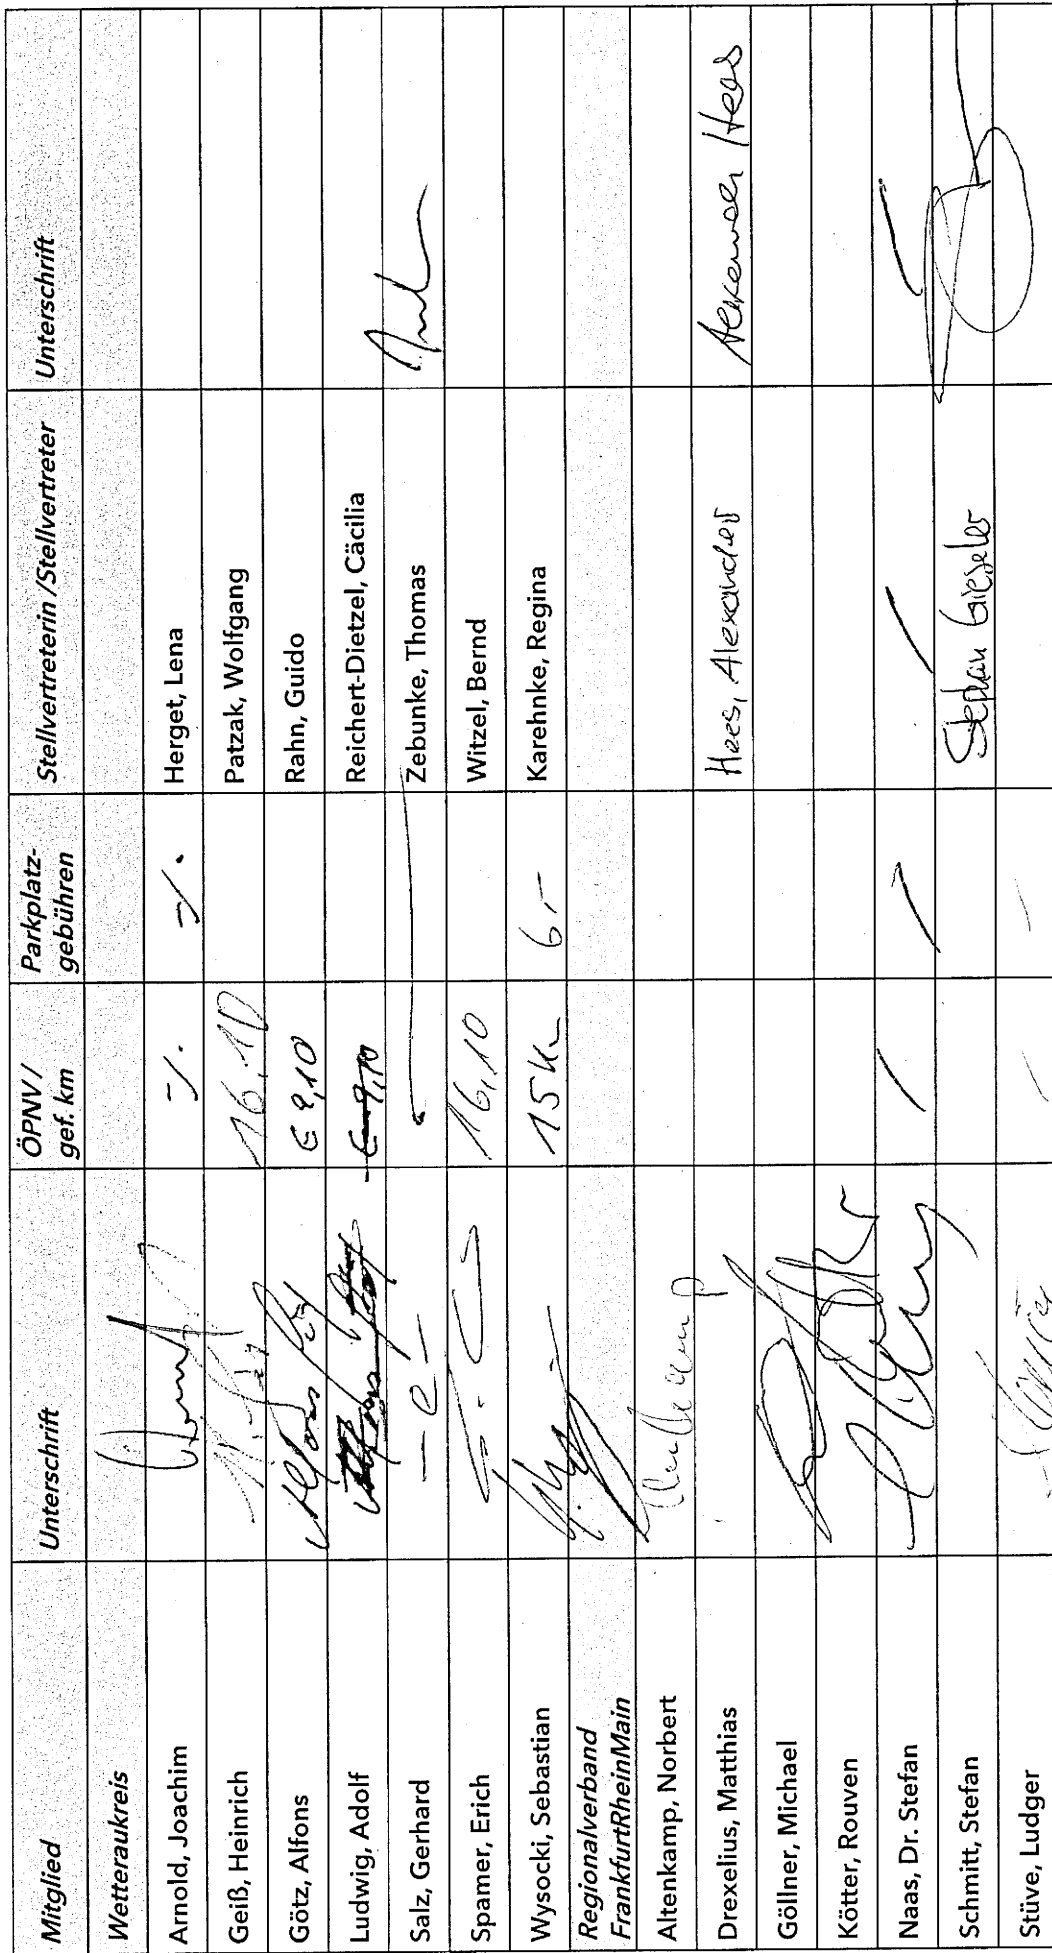 Mitglied Unterschrift ÖPNV / gef. km Parkplatz-gebühren Stellvertreterin /Stellvertreter Unterschrift
Wetteraukreis
Arnold, Joachim ./. ./. Herget, Lena
Geiß, Heinrich 16,10 Patzak, Wolfgang
Götz, Alfons Alfons Götz € 9,10 Rahn, Guido
Ludwig, Adolf € 9,10 Reichert-Dietzel, Cäcilia
Salz, Gerhard - e - Zebunke, Thomas
Spamer, Erich 16,10 Witzel, Bernd
Wysocki, Sebastian 15 km 6,- Karehnke, Regina
Regionalverband
FrankfurtRheinMain
Altenkamp, Norbert Altenkamp
Drexelius, Matthias Hees, Alexander Alexander Hees
Göllner, Michael
Kötter, Rouven
Naas, Dr. Stefan
Schmitt, Stefan Stephan Gieseler
Stüve, Ludger